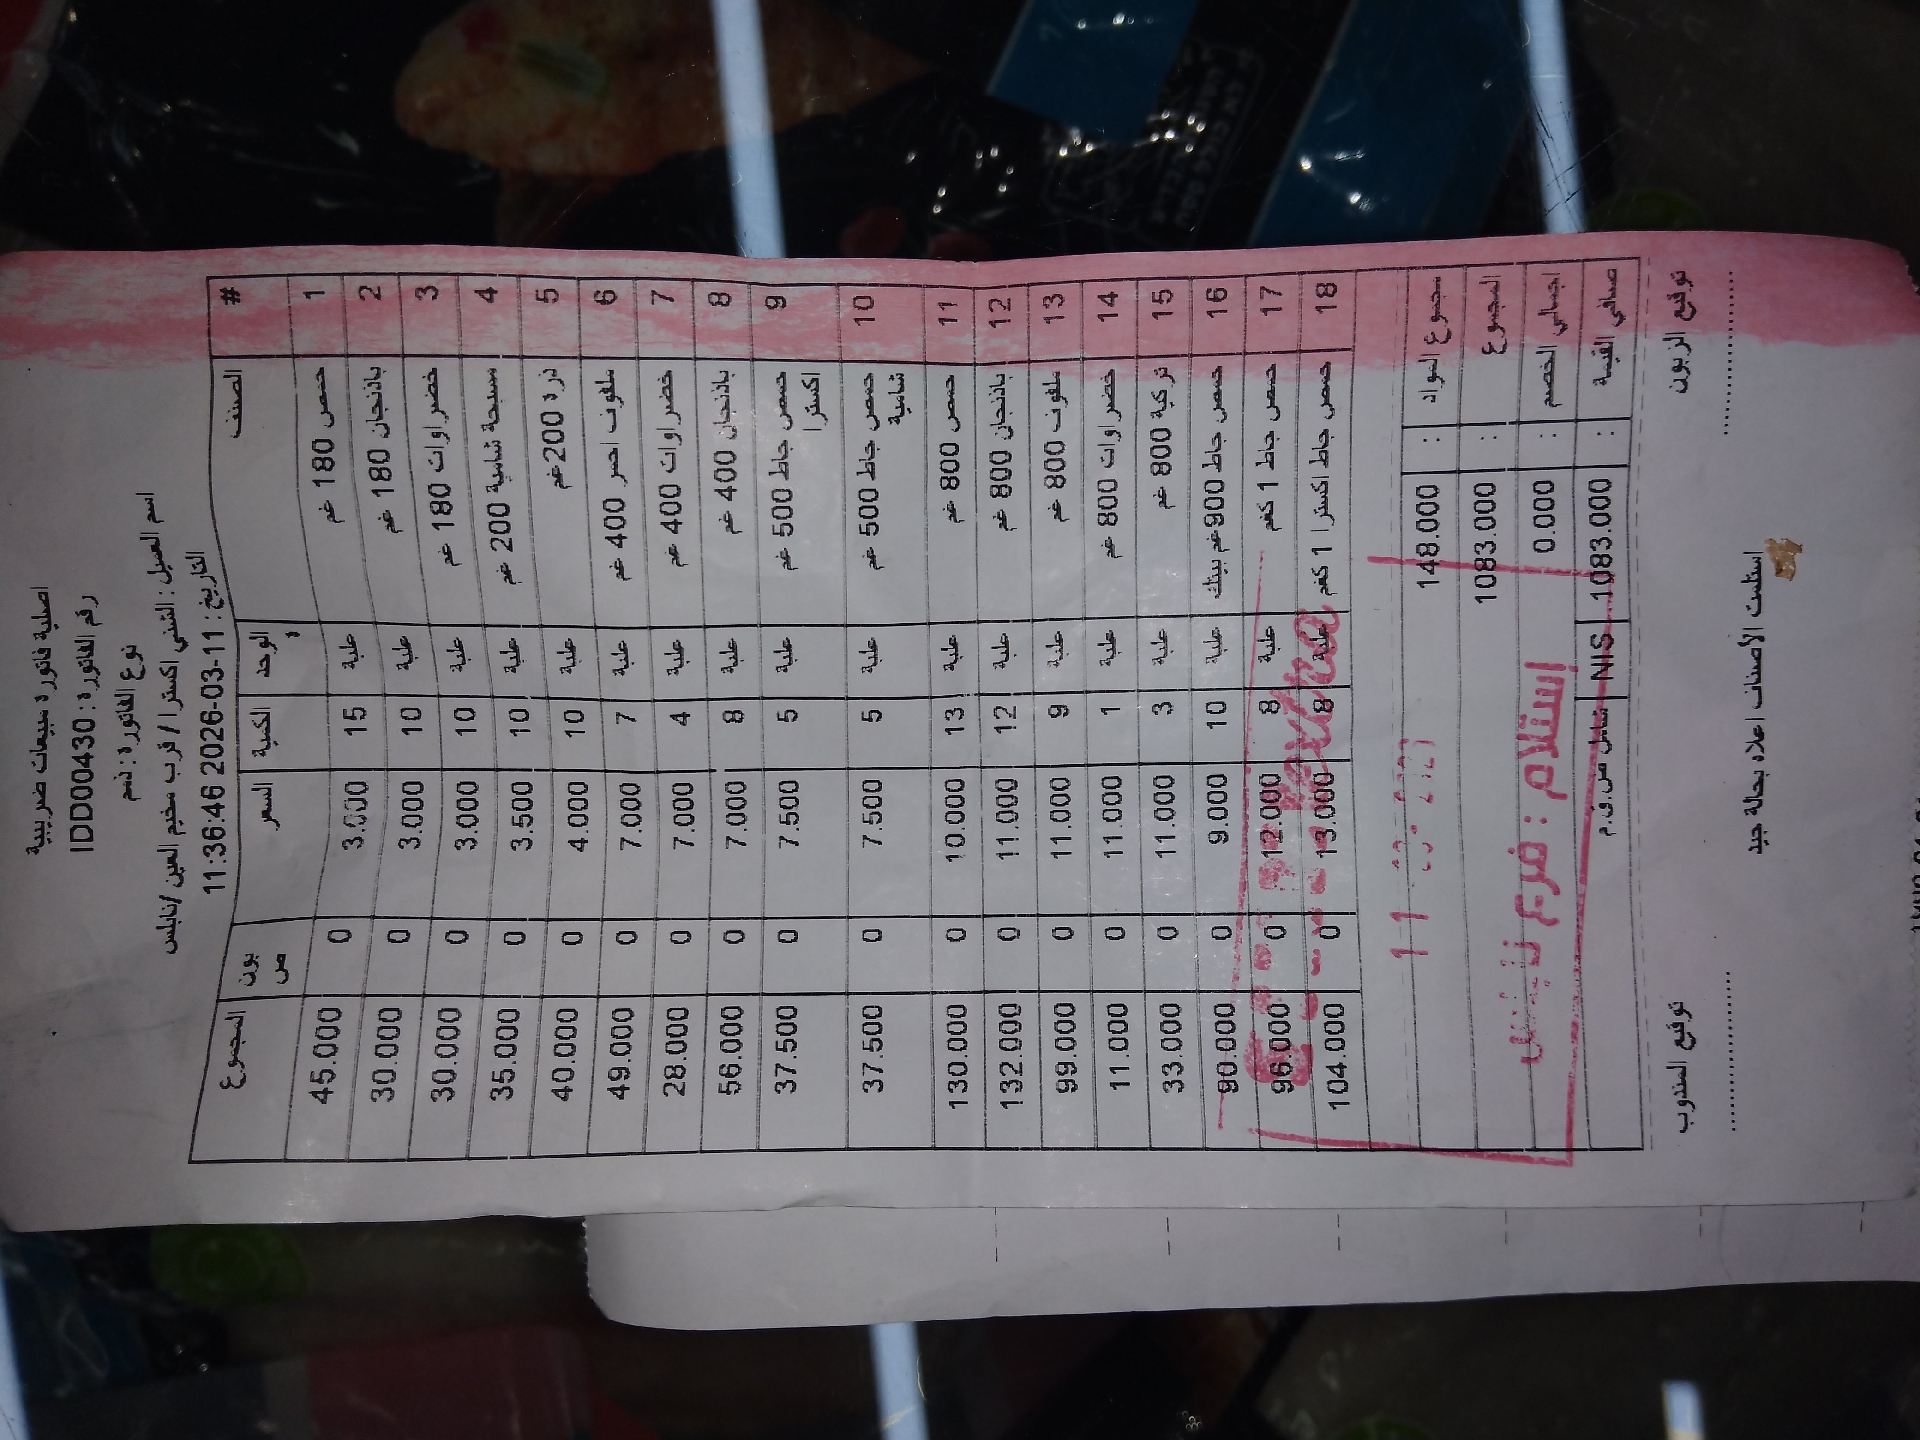 اصلية فاتورة مبيعات ضريبية
رقم الفاتورة : IDD00430
نوع الفاتورة : ذمم
اسم العميل : الشني اكسترا / قرب مخيم العين /نابلس
التاريخ : 2026-03-11 11:36:46
# الصنف الوحدة الكمية السعر بونص المجموع
1 حمص 180 غم علبة 15 3.000 0 45.000
2 باذنجان 180 غم علبة 10 3.000 0 30.000
3 خضراوات 180 غم علبة 10 3.000 0 30.000
4 مسبحة شامية 200 غم علبة 10 3.500 0 35.000
5 ذرة 200غم علبة 10 4.000 0 40.000
6 ملفوف احمر 400 غم علبة 7 7.000 0 49.000
7 خضراوات 400 غم علبة 4 7.000 0 28.000
8 باذنجان 400 غم علبة 8 7.000 0 56.000
9 حمص جاط 500 غم اكسترا علبة 5 7.500 0 37.500
10 حمص جاط 500 غم شامية علبة 5 7.500 0 37.500
11 حمص 800 غم علبة 13 10.000 0 130.000
12 باذنجان 800 غم علبة 12 11.000 0 132.000
13 ملفوف 800 غم علبة 9 11.000 0 99.000
14 خضراوات 800 غم علبة 1 11.000 0 11.000
15 تركية 800 غم علبة 3 11.000 0 33.000
16 حمص جاط 900غم بيتك علبة 10 9.000 0 90.000
17 حمص جاط 1 كغم علبة 8 12.000 0 96.000
18 حمص جاط اكسترا 1 كغم علبة 8 13.000 0 104.000
مجموع المواد : 148.000
المجموع : 1083.000
اجمالي الخصم : 0.000
صافي القيمة : 1083.000 NIS شامل ض.ق.م
إستلام : فرع نابلس
توقيع الزبون توقيع المندوب
استلمت الأصناف اعلاه بحالة جيد